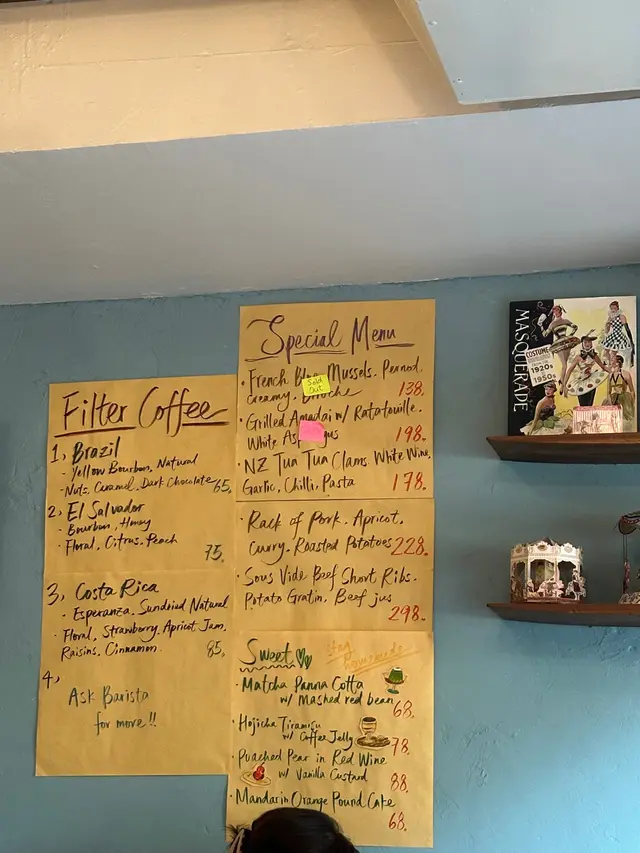 Filter Coffee
1, Brazil
- Yellow Bourbon, Natural
- Nuts, Caramel, Dark Chocolate 65.
2, El Salvador
- Bourbon, Honey
- Floral, Citrus, Peach
75.
3, Costa Rica
- Esperanza, Sundried Natural
- Floral, Strawberry, Apricot Jam,
Raisins, Cinnamon. 85.
4,
Ask Barista
for more!!
Special Menu
· French Mussels. Peanod.
creamy. Brioche 138.
Sold
Out
· Grilled Amadai w/ Ratatouille.
White 198.
· NZ Tua Tua Clams White Wine.
Garlic, Chilli, Pasta 178.
· Rack of Pork. Apricot,
Curry. Roasted Potatoes 228.
· Sous Vide Beef Short Ribs.
Potato Gratin, Beef jus
298.
Sweet
homemade
· Matcha Panna Cotta
w/ Mashed red bean 68.
· Hojicha Tiramisu
w/ Coffee Jelly 78.
· Poached Pear in Red Wine
w/ Vanilla Custard 88.
· Mandarin Orange Pound Cake
68.
MASQUERADE
COSTUME
1920s
1950s